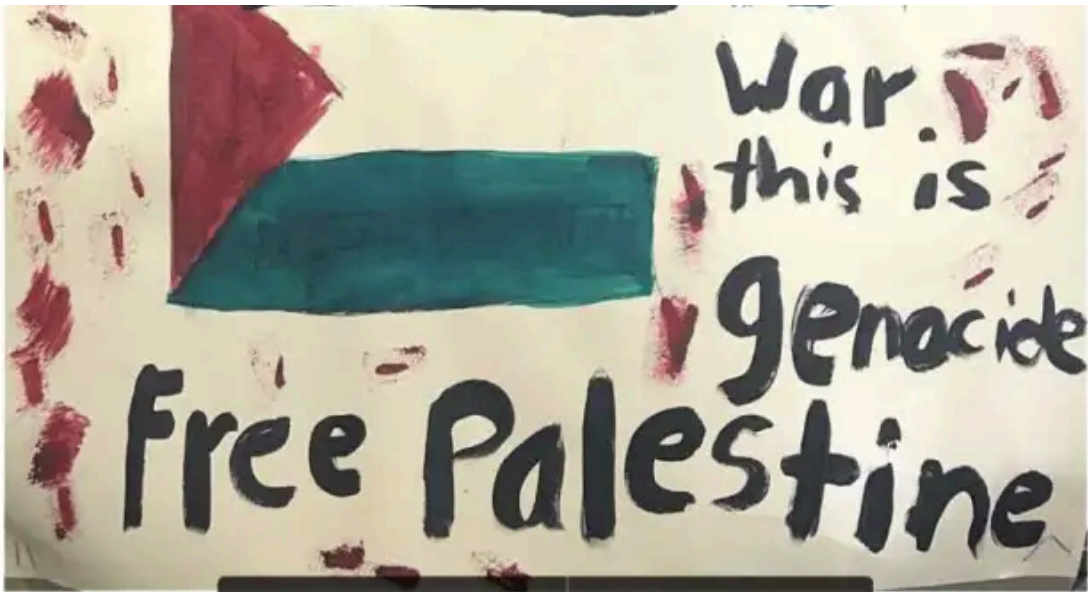 War.
this is
genocide
Free Palestine